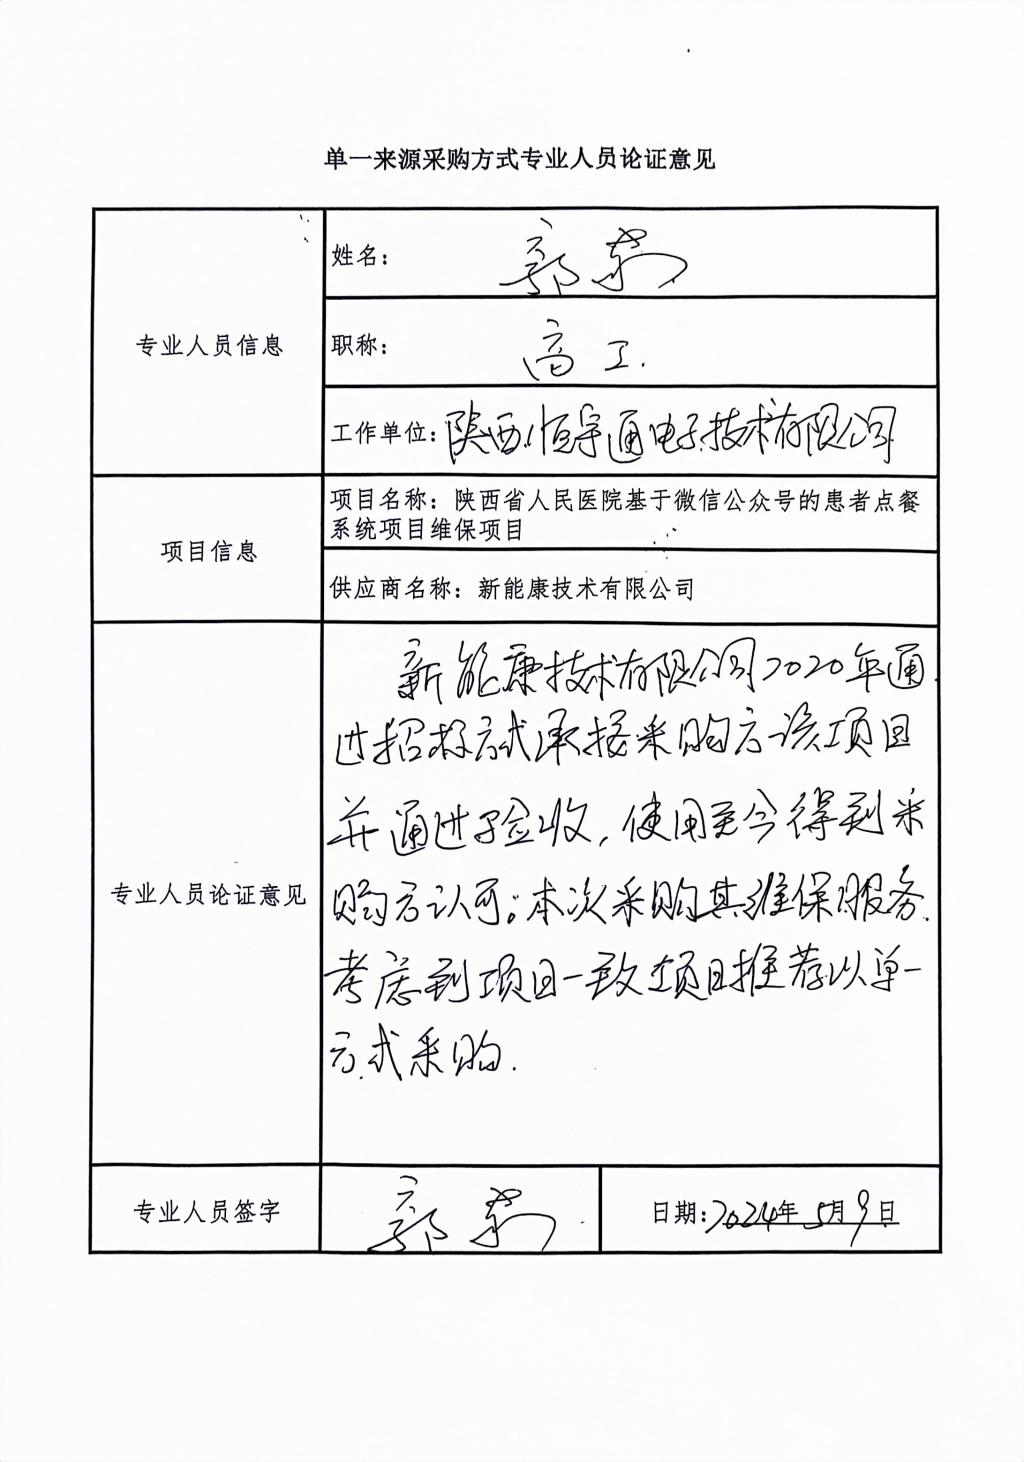 单一来源采购方式专业人员论证意见
专业人员信息
姓名：郭莉
职称：高工.
工作单位：陕西恒宇通电子技术有限公司
项目信息
项目名称：陕西省人民医院基于微信公众号的患者点餐
系统项目维保项目
供应商名称：新能康技术有限公司
专业人员论证意见
新能康技术有限公司2020年通
过招标方式承接采购方该项目
并通过了验收，使用至今得到采
购方认可。本次采购其维保服务.
考虑到项目一致 项目推荐以单一
方式采购.
专业人员签字
郭莉
日期：2024年5月9日